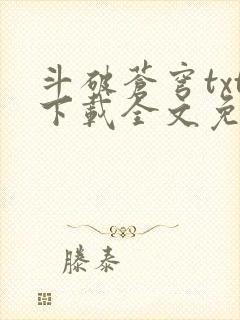 斗破苍穹txt
下载全文免
滕泰